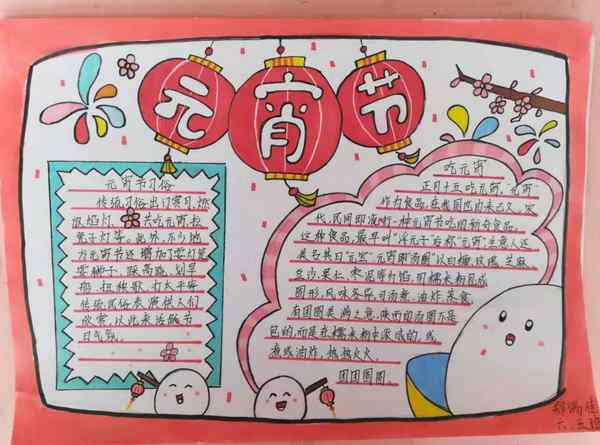 元宵节
元宵节习俗
传统习俗出门赏月、燃
放焰灯、共吃元宵、拉
兔子灯等。此外,不少地
方元宵节还增加了耍龙灯、
耍狮子、踩高跷、划旱
船、扭秧歌、打太平等
传统民俗表演供人们
欣赏,以此来活跃节
日气氛。
吃元宵
正月十五吃元宵,“元宵”
作为食品,在我国也由来已久,宋
代,民间即流行一种元宵节吃的新奇食品。
这种食品,最早叫“浮元子”后称“元宵”,生意人还
美名其曰“元宝”。元宵即“汤圆”以白糖、玫瑰、芝麻、
豆沙、果仁、枣泥等为馅,用糯米粉包成
圆形,风味各异。可汤煮、油炸、蒸食,
有团圆美满之意。陕西的汤圆不是
包的,而是在糯米粉中滚成的,或
煮或油炸,热热火火,
团团圆圆。
六、五班